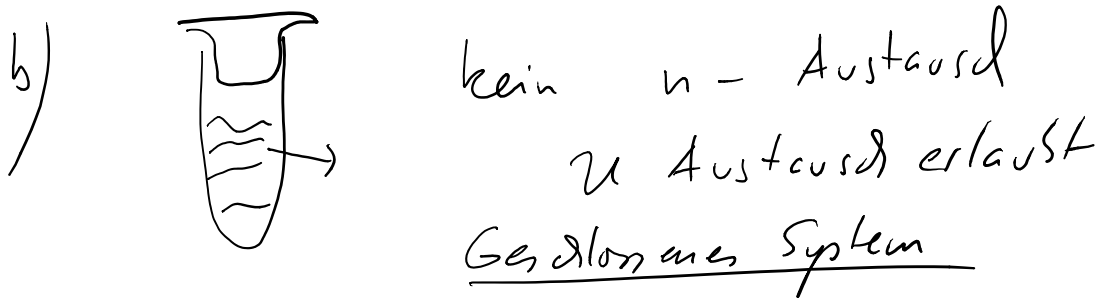 b) kein n - Austausch
U Austausch erlaubt
Geschlossenes System